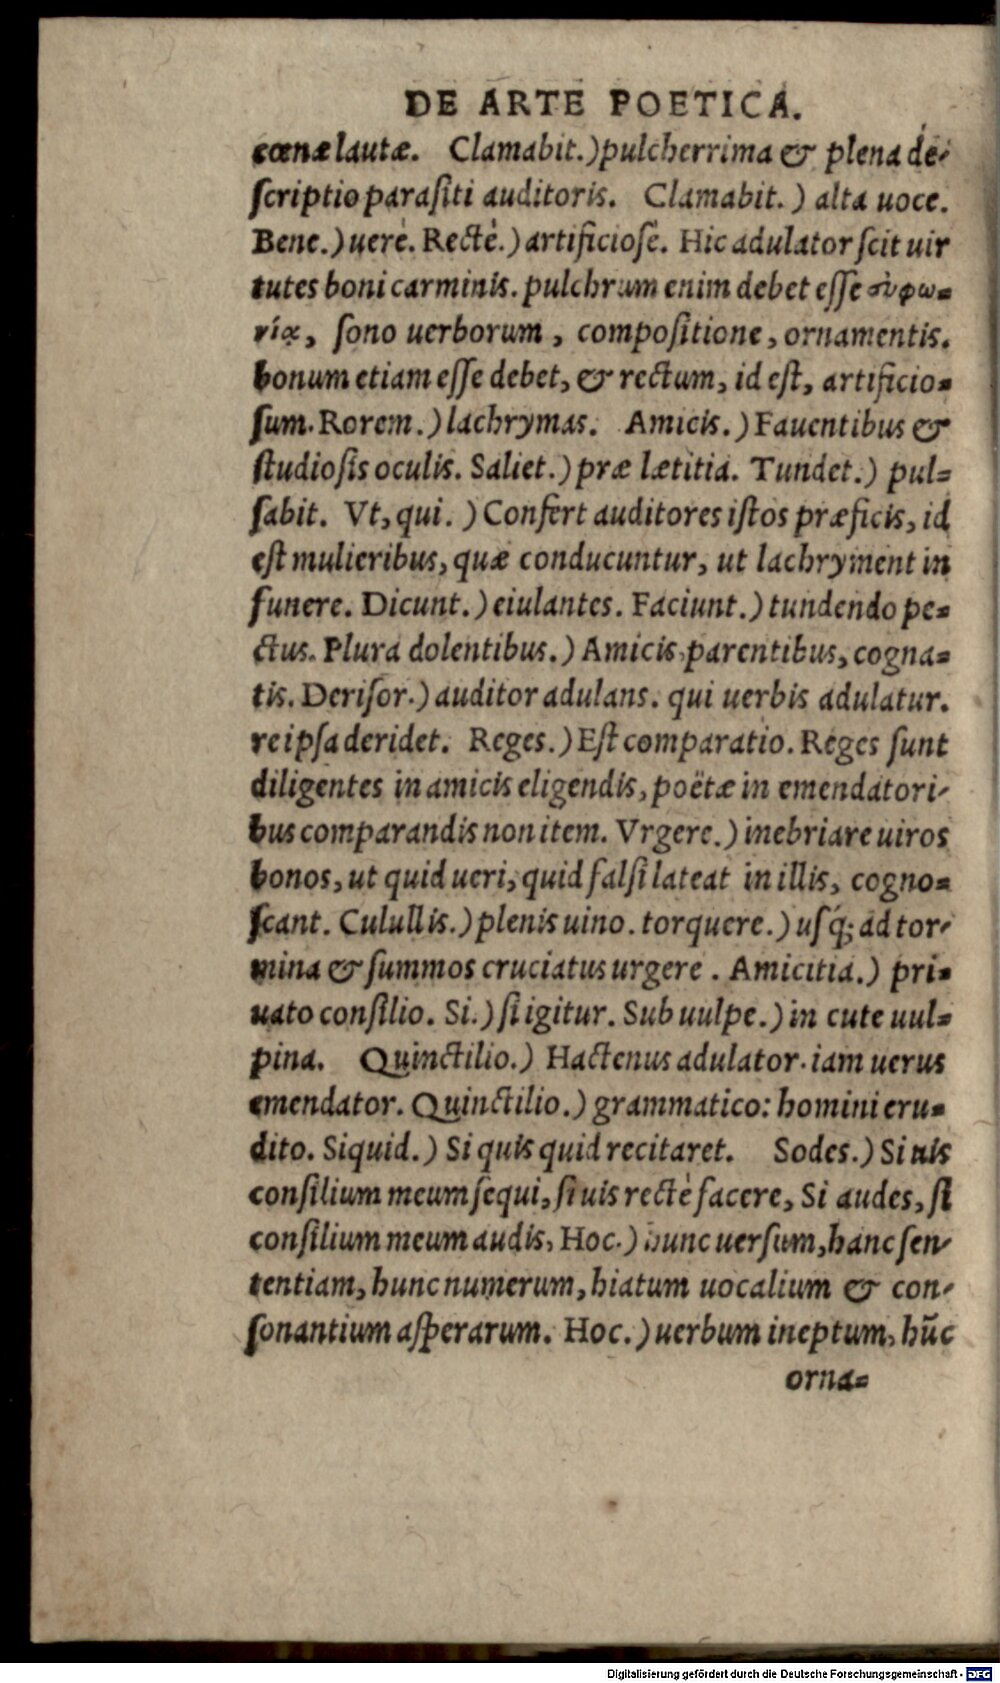 DE ARTE POETICA.
cœnæ lautæ. Clamabit.) pulcherrima & plena dé-
ſcriptio paraſiti auditoris. Clamabit.) alta uoce.
Bene.) uerè. Rectè.) artificioſè. Hic adulator ſcit uir
tutes boni carminis. pulchrum enim debet eſſe συφω-
νίᾳ, ſono uerborum, compoſitione, ornamentis.
bonum etiam eſſe debet, & rectum, id eſt, artificio-
ſum. Rorem.) lachrymas. Amicis.) Fauentibus &
ſtudioſis oculis. Saliet.) præ lætitia. Tundet.) pul-
ſabit. Vt, qui.) Confert auditores iſtos præficis, id
eſt mulieribus, quæ conducuntur, ut lachryment in
funere. Dicunt.) eiulantes. Faciunt.) tundendo pe-
ctus. Plura dolentibus.) Amicis, parentibus, cogna-
tis. Deriſor.) auditor adulans. qui uerbis adulatur.
reipſa deridet. Reges.) Eſt comparatio. Reges ſunt
diligentes in amicis eligendis, poëtæ in emendatori-
bus comparandis non item. Vrgere.) inebriare uiros
bonos, ut quid ueri, quid falſi lateat in illis, cogno-
ſcant. Culullis.) plenis uino. torquere.) uſq; ad tor-
mina & ſummos cruciatus urgere. Amicitia.) pri-
uato conſilio. Si.) ſi igitur. Sub uulpe.) in cute uul-
pina. Quinctilio.) Hactenus adulator. iam uerus
emendator. Quinctilio.) grammatico: homini eru-
dito. Siquid.) Si quis quid recitaret. Sodes.) Si uis
conſilium meum ſequi, ſi uis rectè facere, Si audes, ſi
conſilium meum audis, Hoc.) hunc uerſum, hanc ſen-
tentiam, hunc numerum, hiatum uocalium & con-
ſonantium aſperarum. Hoc.) uerbum ineptum, hūc
orna-
Digitalisierung gefördert durch die Deutsche Forschungsgemeinschaft - DFG